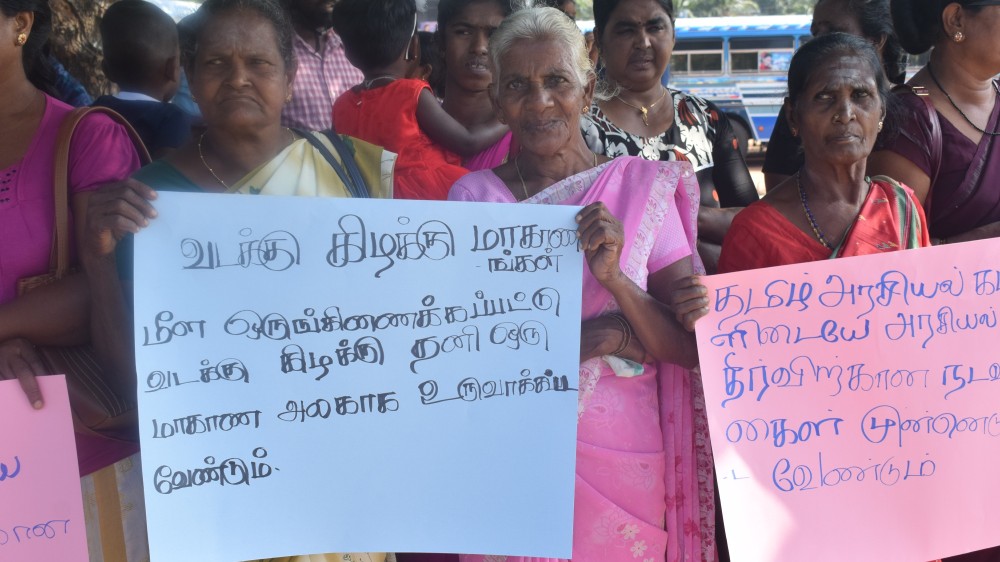 வடக்கு கிழக்கு மாகாண
ங்கள்
மீள ஒருங்கிணைக்கப்பட்டு
வடக்கு கிழக்கு தனி ஒரு
மாகாண அலகாக உருவாக்கப்பட
வேண்டும்.
தமிழ் அரசியல் கட்
ளிடையே அரசியல்
தீர்விற்கான நடவ
கைகள் முன்னெடு
ட வேண்டும்
ய
மான